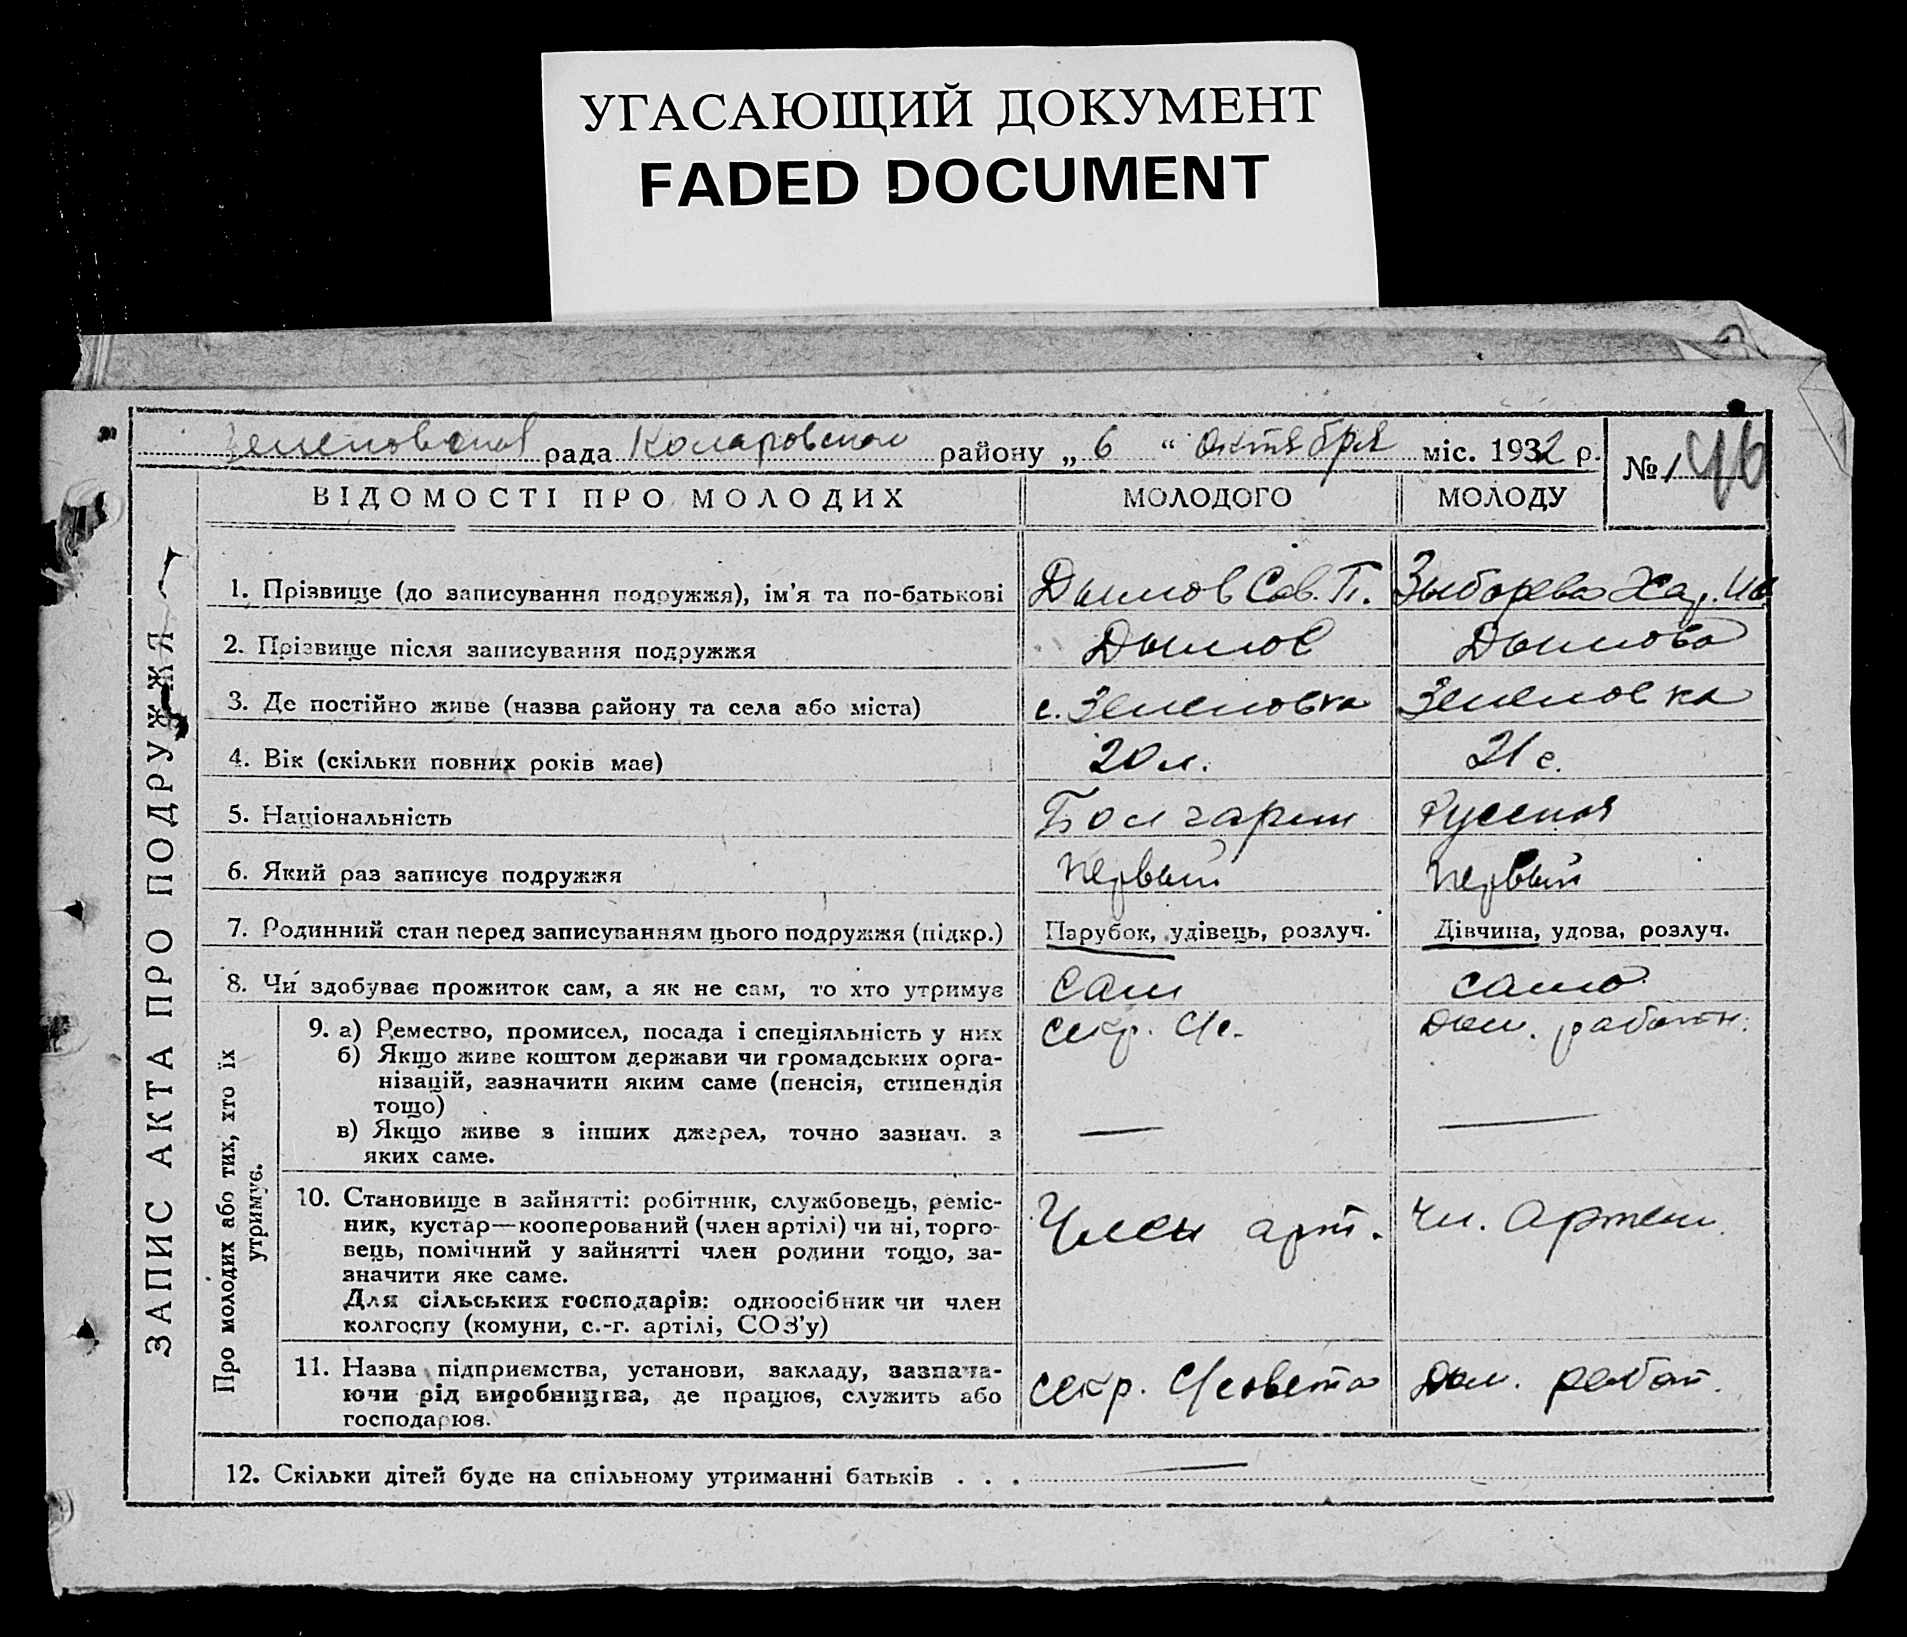 УГАСАЮЩИЙ ДОКУМЕНТ
FADED DOCUMENT
рада Коларовском району „ 6 “ Октября міс. 1932 р. №
ВІДОМОСТІ ПРО МОЛОДИХ МОЛОДОГО МОЛОДУ
ЗАПИС АКТА ПРО ПОДРУЖЖЯ
1. Прізвище (до записування подружжя), ім'я та по-батькові Дымов Сав. П. Зыборева Хар. Ив
2. Прізвище після записування подружжя Дымов Дымова
3. Де постійно живе (назва району та села або міста) с. Зеленовка Зеленовка
4. Вік (скільки повних років має) 20 л. 21 г.
5. Національність Болгарин Русская
6. Який раз записує подружжя первый первый
7. Родинний стан перед записуванням цього подружжя (підкр.) Парубок, удівець, розлуч. Дівчина, удова, розлуч.
8. Чи здобуває прожиток сам, а як не сам, то хто утримує сам сама
Про молодих або тих, хто їх утримує.
9. а) Ремество, промисел, посада і спеціяльність у них секр. с/с. дом. работн.
б) Якщо живе коштом держави чи громадських орга-
нізацій, зазначити яким саме (пенсія, стипендія
тощо)
в) Якщо живе з інших джерел, точно зазнач. з — —
яких саме.
10. Становище в зайнятті: робітник, службовець, реміс- Член арт. чл. артели
ник, кустар—кооперований (член артілі) чи ні, торго-
вець, помічний у зайнятті член родини тощо, за-
значити яке саме.
Для сільських господарів: одноосібник чи член
колгоспу (комуни, с.-г. артілі, СОЗ'у)
11. Назва підприємства, установи, закладу, зазнача- секр. с/совета дом. работ.
ючи рід виробництва, де працює, служить або
господарює.
12. Скільки дітей буде на спільному утриманні батьків . . . —